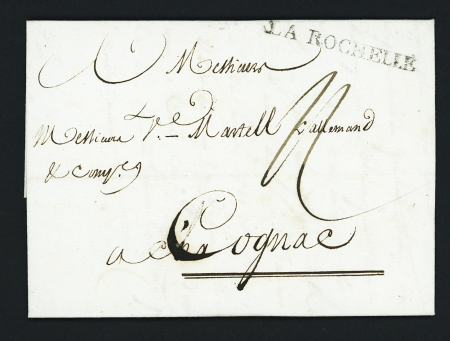 LA ROCHELLE
Messieurs
Messieurs Ve. Martell Lallemand
& Compe
a Cognac